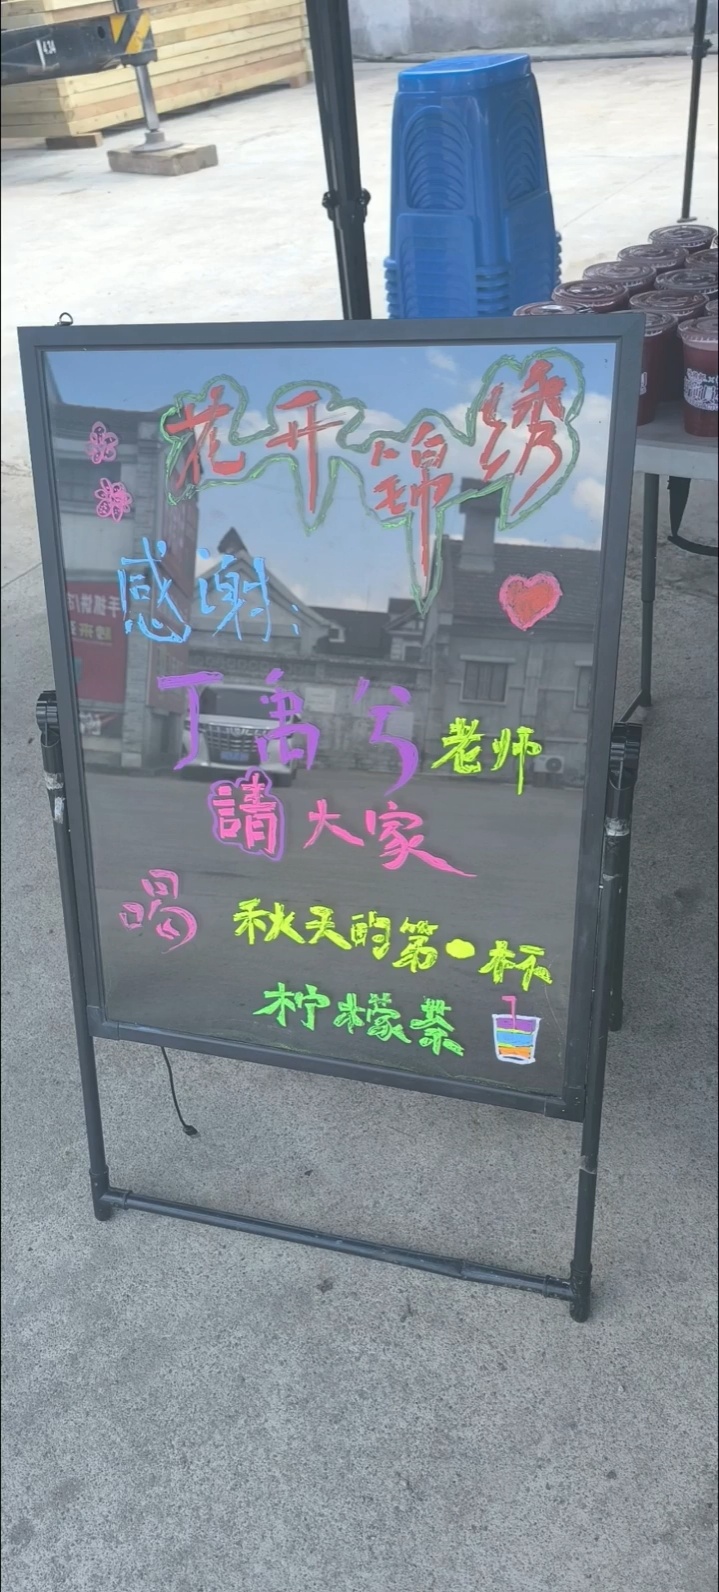 花开锦绣
感谢:
丁禹兮老师
請大家
喝 秋天的第•杯
柠檬茶